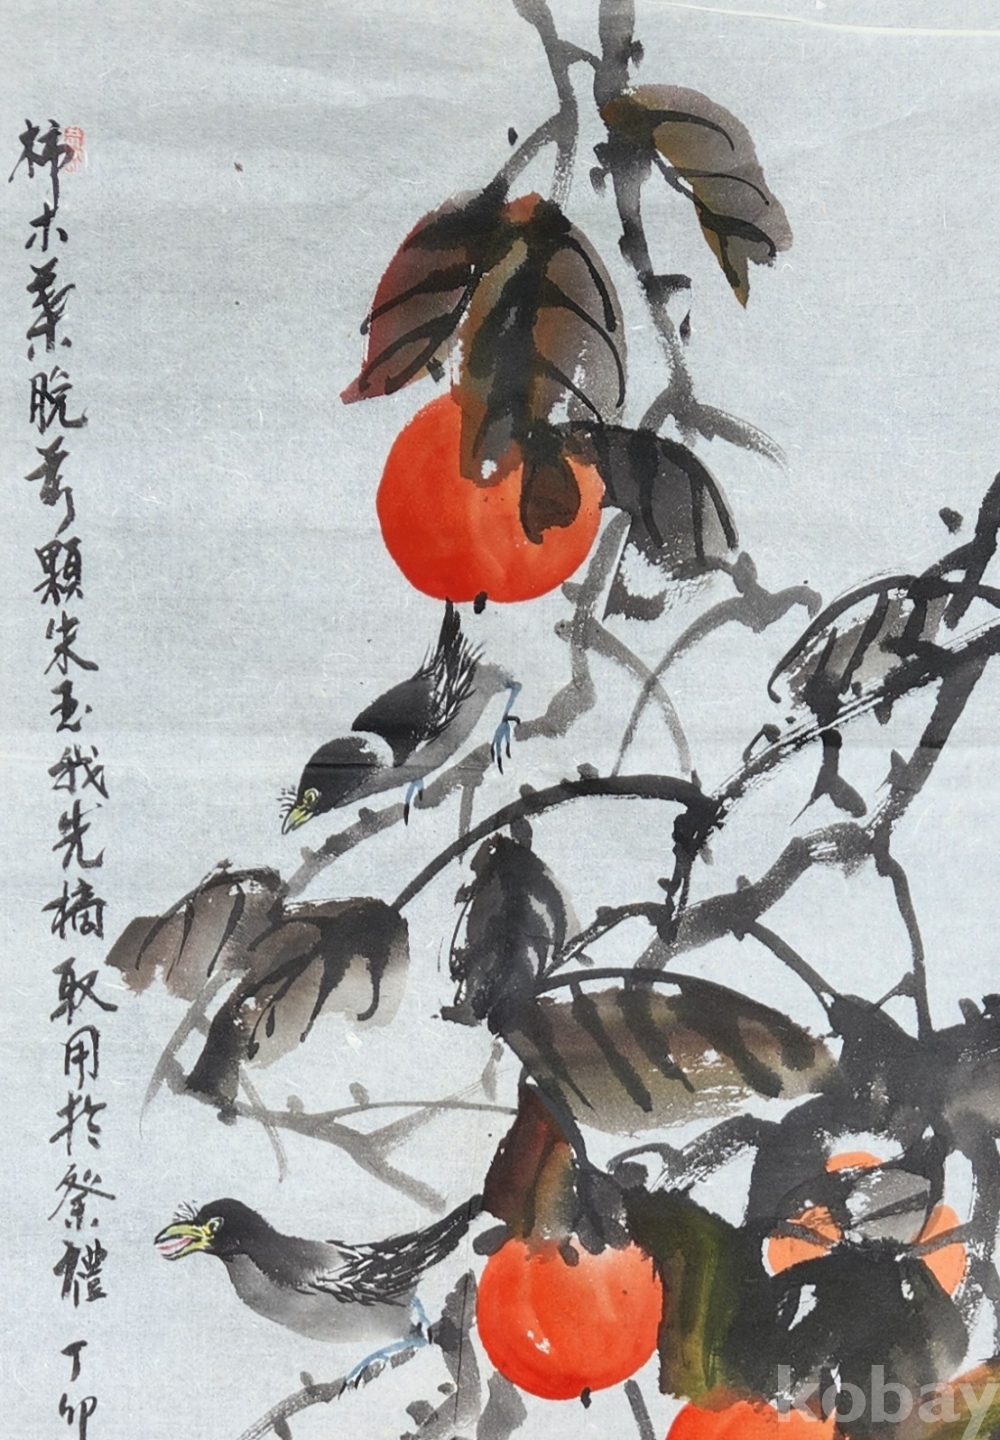 柿木葉脫萬顆朱玉我先摘取用於祭禮 丁卯
kobay